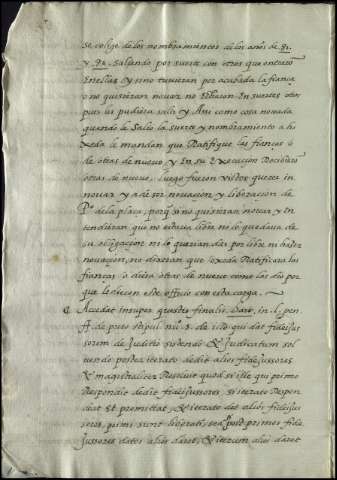 se colige de los nombramientos de los años de 91.
y 92. saliendo por suerte con otros que entraro
En ellas Cy si no tuvieran por acabada la fiança
o no quisieran novar no Echaran En suertes otro
pues ni pudiera salir y Ansi como cosa novada
quando le Salio la suerte y nombramiento a hi
Xeda le mandan que Ratifique las fianças o
de otras de nuevo y En su Execucion Recibiero
otras de nuevo. luego fueron vistos querer in
novar y a de ser novacion y liberacion de
P.º de la plaça, porq si no quisieran novar y En
tendieran que no estava libre no lo quedava de
su obligacion ni lo querian dar por libre ni hazer
novacion, no dixeran que lexeda Ratificara las
fianças o diera otras de nuevo como las dio por
que le dieron el de officio con esta carga.
Accedat insuper quaedam finalis, Dato, in. l. pen
ff. de preto stipul. nu.º 5. de illo qui dat fideius
sorem de Juditio sistendo & Judicatum sol
vendo postea iterato dedit alios fideJussores
& magistraliter Resolvit quod si ille qui primo
Respondit dedit fideJussores si iterato Respon
deat & promittat, & iterato det alios fideius
sores, primi sunt liberati, sea post primos fide
Jussores datos alios daret, & iterum alios daret